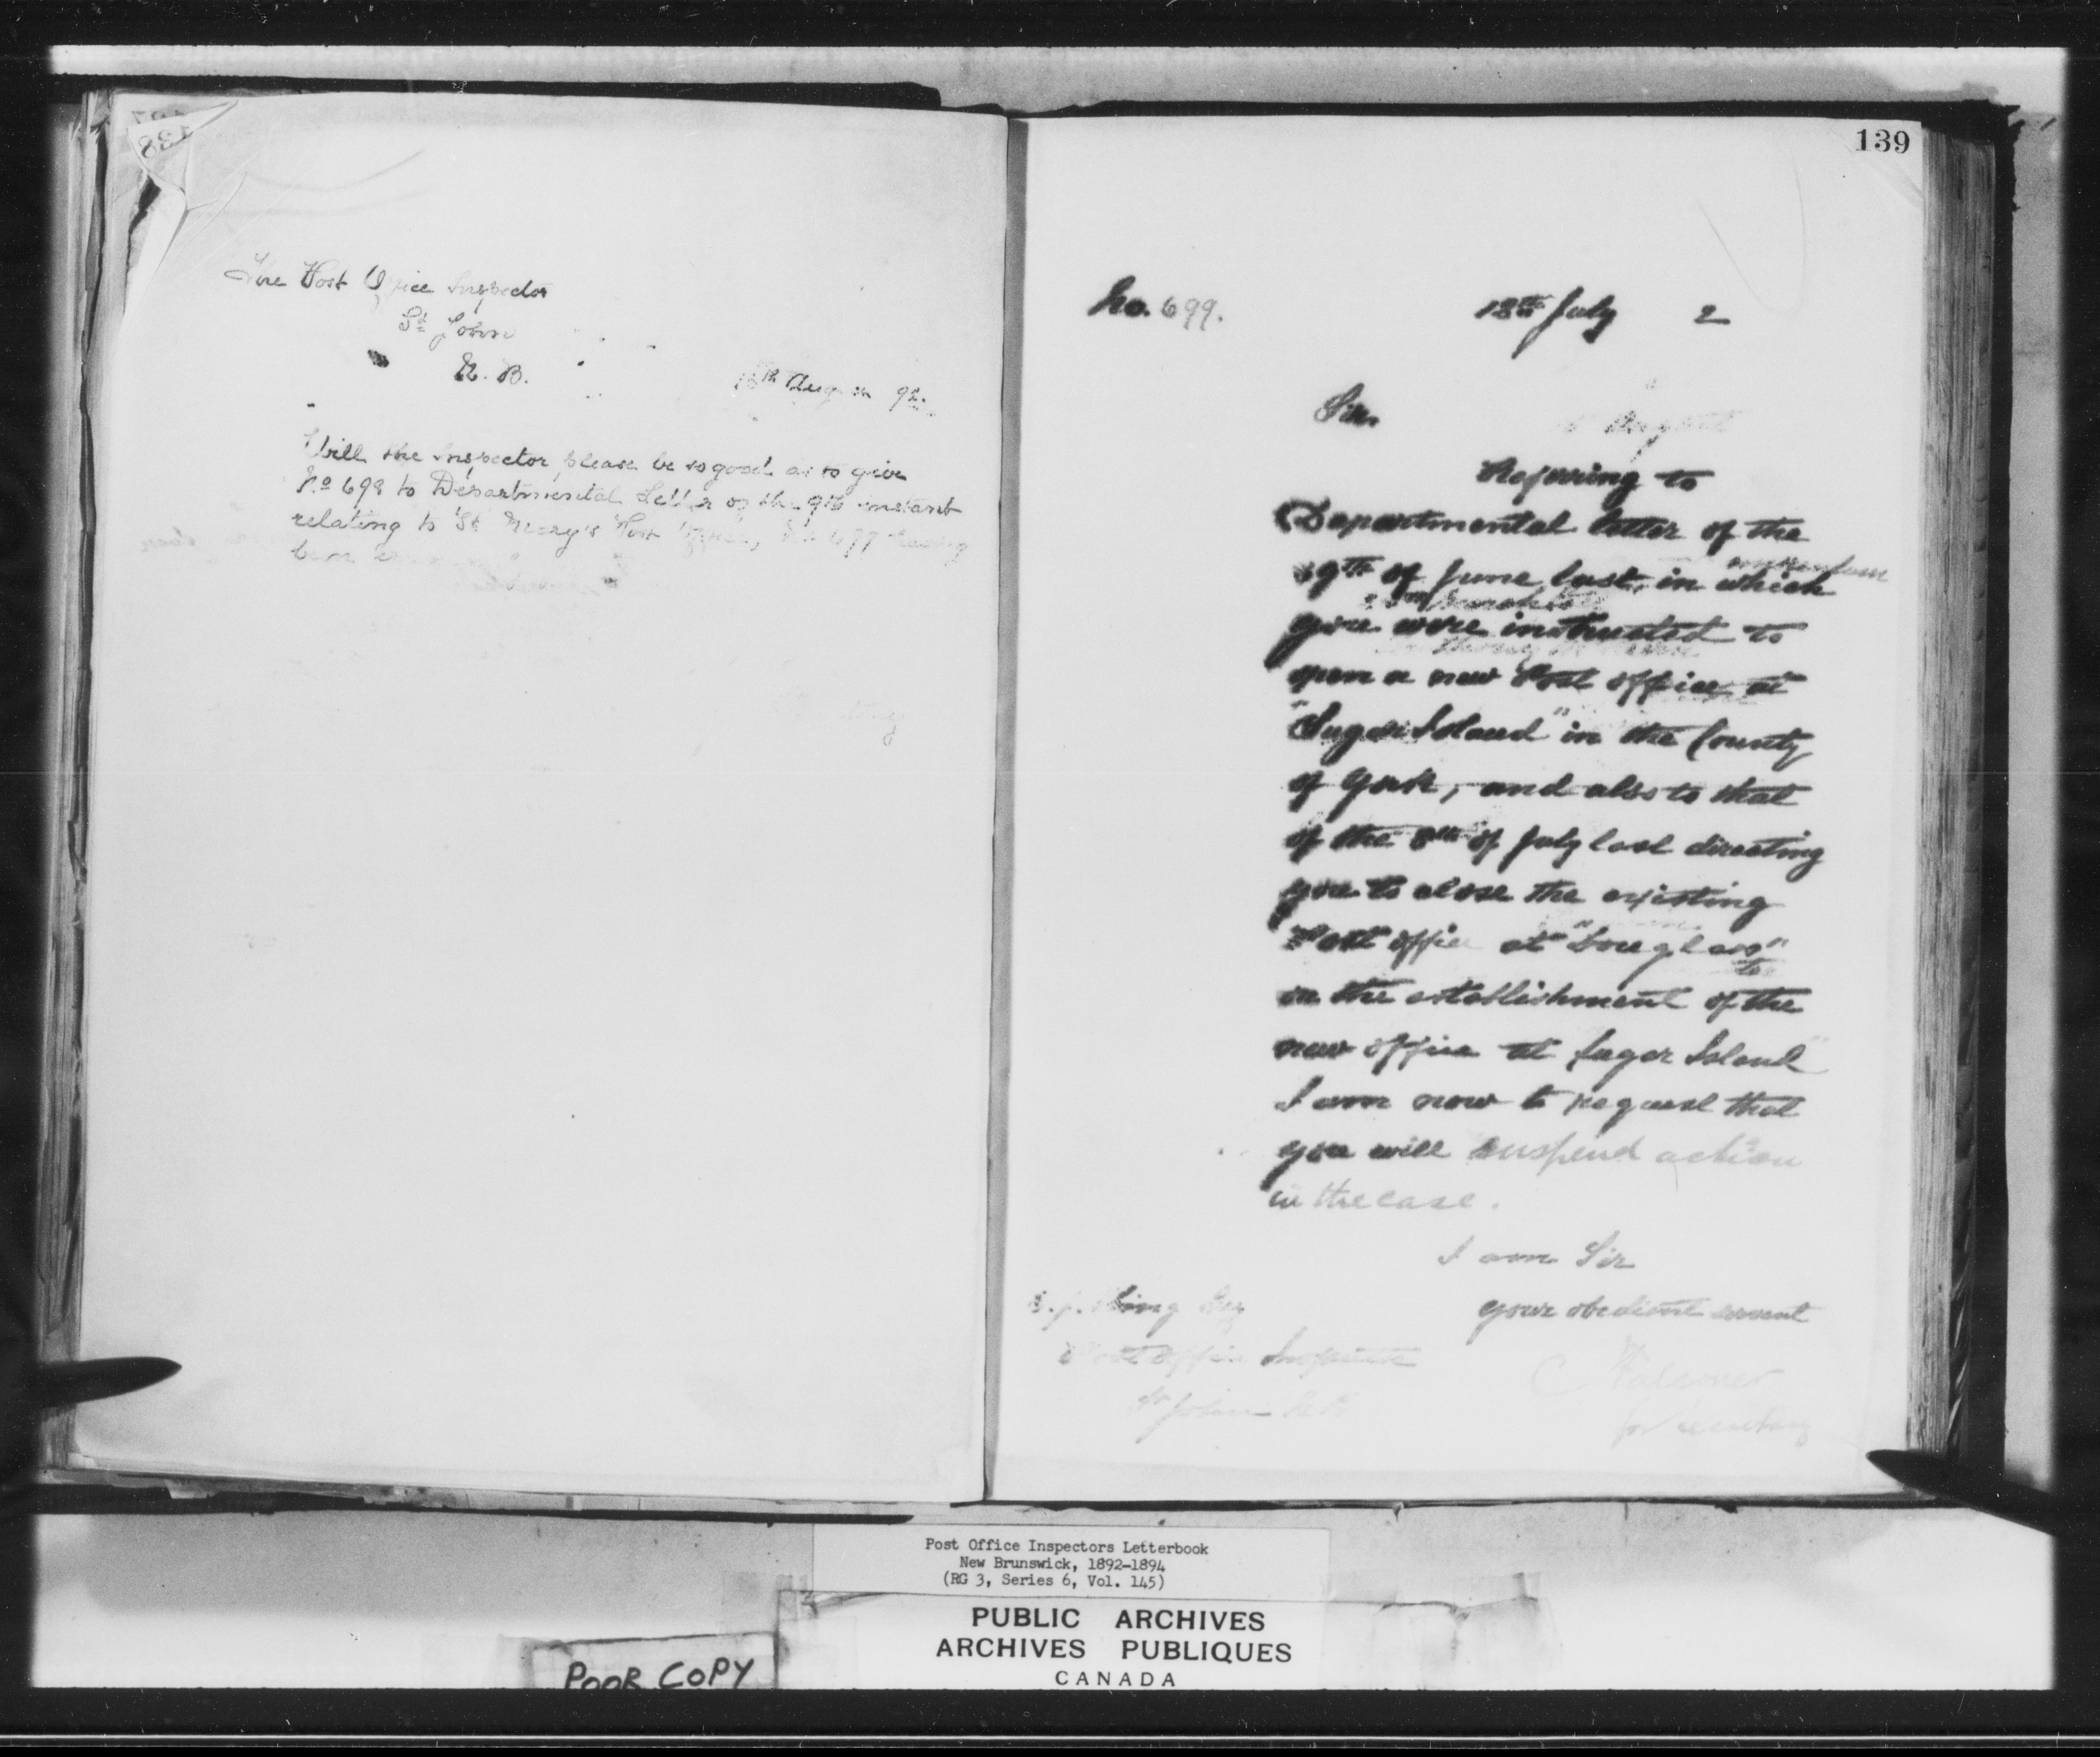 138
The Post Office Inspector
St John
N. B.
18th August 92.
Will the Inspector please be so good as to give
No 698 to Departmental Letter of the 9th instant
relating to St Mary's Post Office, No 677 having
been
139
No. 699.
18th July 2
Sir
August
Referring to
Departmental letter of the
of June last, in which
you were instructed to
open a new Post office at
"Sugar Island" in the County
of York, and also to that
of the 8th of July last directing
you to close the existing
Post office at "Douglass"
to
on the establishment of the
new office at Sugar Island"
I am now to request that
you will suspend action
in the case.
I am Sir
your obedient servant
King Esq
Post Office Inspector
St John N B
for secretary
Post Office Inspectors Letterbook
New Brunswick, 1892-1894
(RG 3, Series 6, Vol. 145)
PUBLIC ARCHIVES
ARCHIVES PUBLIQUES
CANADA
POOR COPY